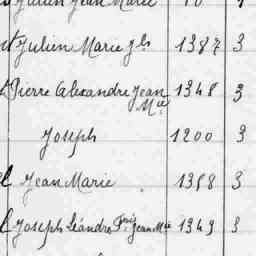 Julien Jean Marie 10
Julien Marie Jh 1387 3
Pierre Alexandre Jean Mie 1348 3
Joseph 1200 3
Jean Marie 1388 3
Joseph Léandre Jean Mie 1349 3